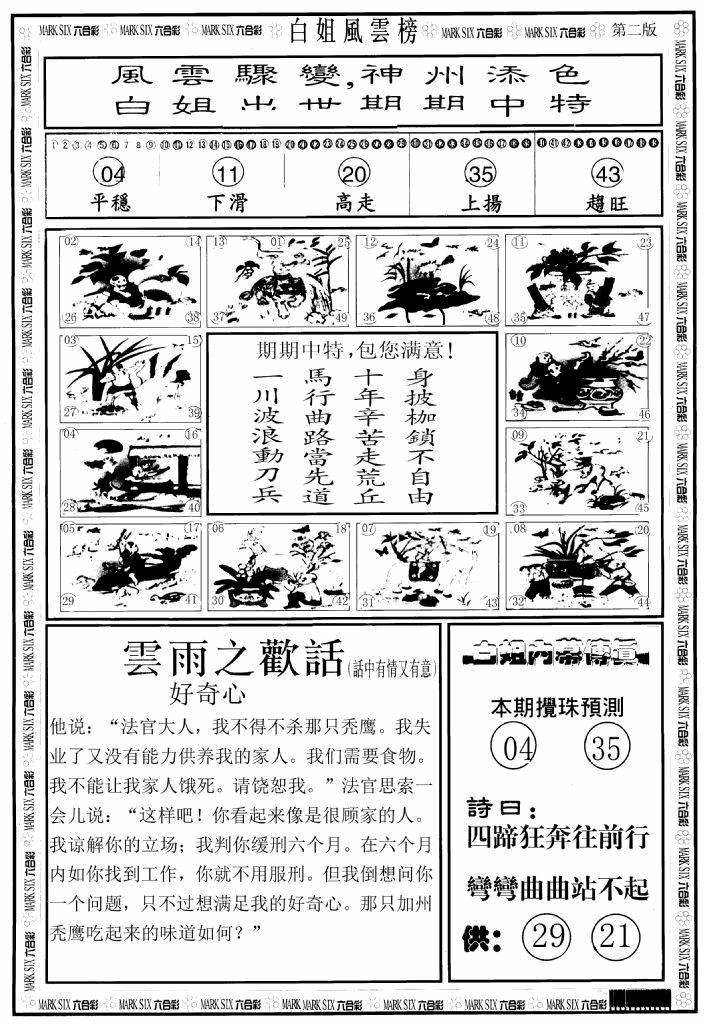 MARK SIX 六合彩 MARK SIX 六合彩 MARK SIX 六合彩 白姐風雲榜 MARK SIX 六合彩 MARK SIX 六合彩 第二版
風雲驟變,神州添色
白姐出世期期中特
04 11 20 35 43
平穩 下滑 高走 上揚 趨旺
02 14 13 01 25 12 24 11 23
26 38 37 49 36 48 35 47
03 15
27 39
04 16
28 40
期期中特,包您满意!
身披枷鎖不自由
十年辛苦走荒丘
馬行曲路當先道
一川波浪動刀兵
10 22
34 46
09 21
33 45
05 17 06 18 07 19 08 20
29 41 30 42 31 43 32 44
雲雨之歡話(話中有情又有意)
好奇心
他说：“法官大人，我不得不杀那只秃鹰。我失
业了又没有能力供养我的家人。我们需要食物。
我不能让我家人饿死。请饶恕我。”法官思索一
会儿说：“这样吧！你看起来像是很顾家的人。
我谅解你的立场；我判你缓刑六个月。在六个月
内如你找到工作，你就不用服刑。但我倒想问你
一个问题，只不过想满足我的好奇心。那只加州
秃鹰吃起来的味道如何？”
白姐内幕傳真
本期攪珠預測
04 35
詩曰：
四蹄狂奔往前行
彎彎曲曲站不起
供： 29 21
MARK SIX 六合彩 MARK SIX 六合彩 MARK SIX 六合彩 MARK SIX 六合彩 MARK SIX 六合彩 MARK SIX 六合彩 MARK SIX 六合彩